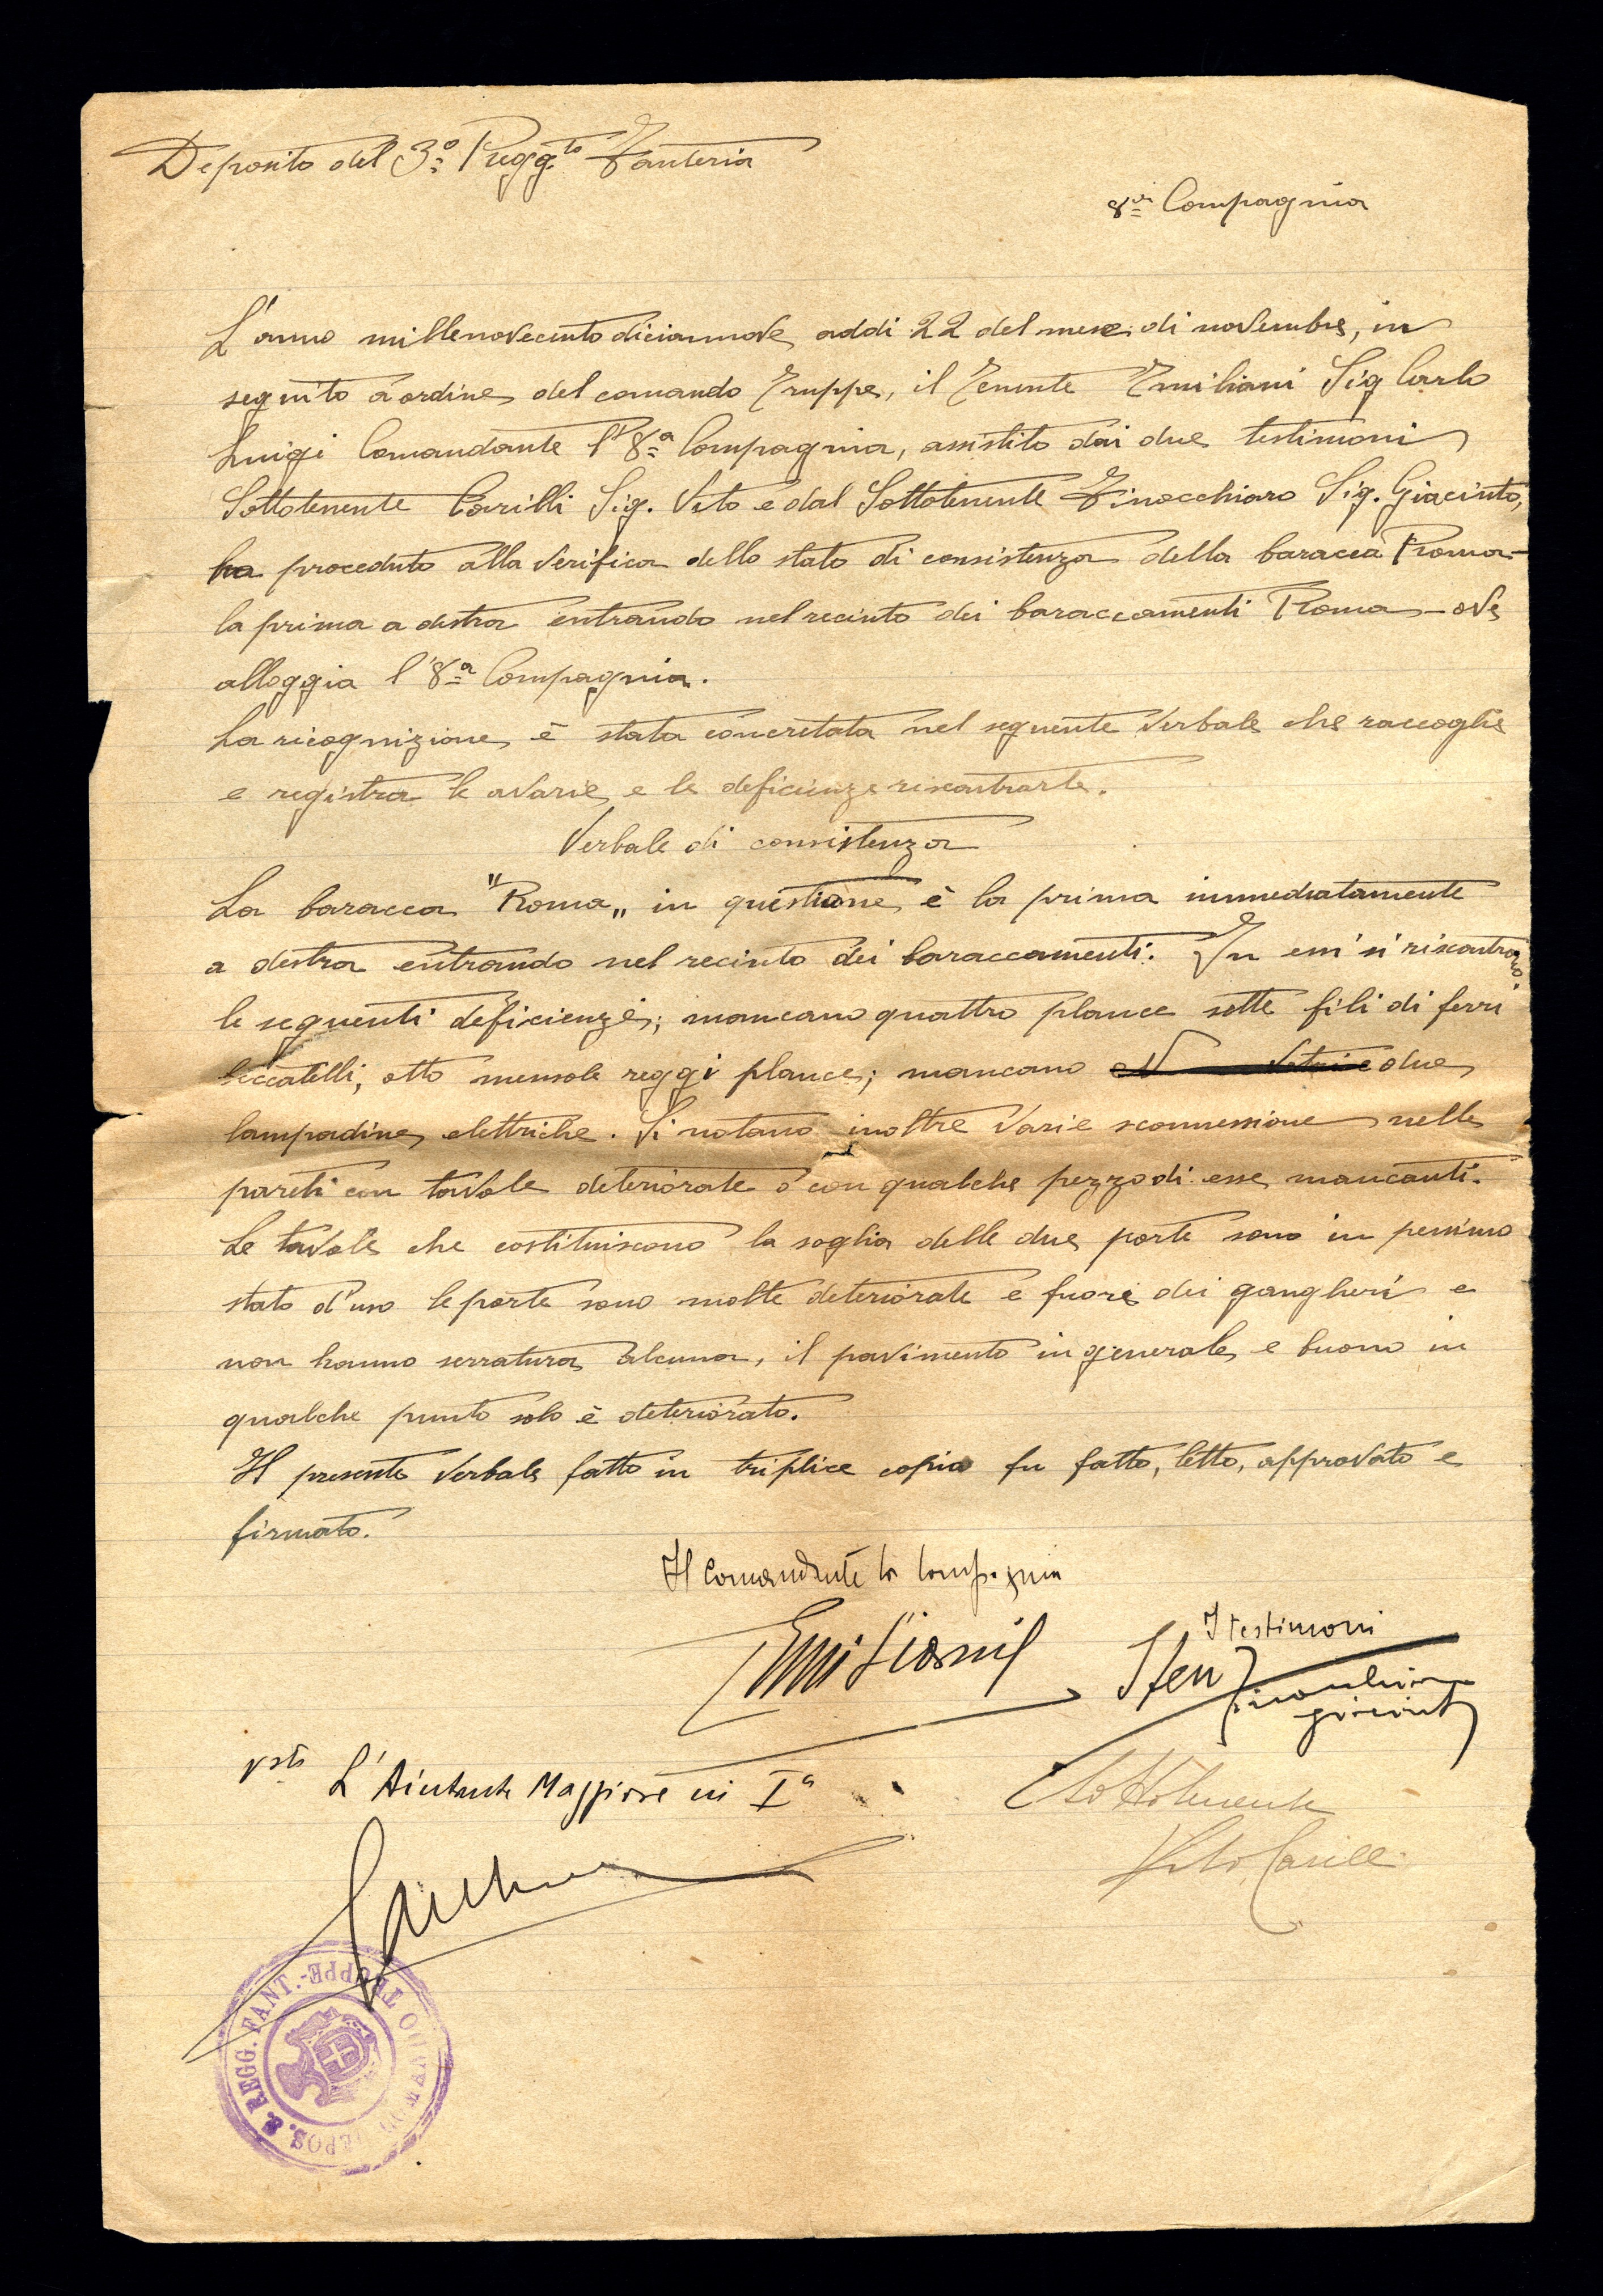 Deposito del 3º Regg.to Fanteria
8ª Compagnia
L'anno millenovecentodiciannove addi 22 del mese di novembre, in
seguito a ordine del comando Truppe, il Tenente Emiliani Sig Carlo
Luigi Comandante l'8ª Compagnia, assistito dai due testimoni
Sottotenente Carilli Sig. Vito e dal Sottotenente Finocchiaro Sig. Giacinto,
ha proceduto alla verifica dello stato di consistenza della baracca Roma-
la prima a destra entrando nel recinto dei baraccamenti Roma - ove
alloggia l'8ª Compagnia.
La ricognizione è stata concretata nel seguente verbale che raccoglie
e registra le avarie e le deficienze riscontrate.
Verbale di consistenza
La baracca "Roma„ in questione è la prima immediatamente
a destra entrando nel recinto dei baraccamenti. In essi si riscontrano
le seguenti deficienze; mancano quattro plance sette fili di ferri
beccatelli, otto mensole reggi plance; mancano due
lampadine elettriche. Si notano inoltre varie sconnessione nelle
pareti con tavole deteriorate o con qualche pezzo di esse mancanti.
Le tavole che costituiscono la soglia delle due porte sono in pessimo
stato d'uso le porte sono molte deteriorate e fuori dei gangheri e
non hanno serratura alcuna, il pavimento in generale e buono in
qualche punto solo è deteriorato.
Il presente verbale fatto in triplice copia fu fatto, letto, approvato e
firmato.
Il Comandante la Compagnia
Emiliani
I testimoni
Sten Finocchiaro
Giacinto
Visto L'Aiutante Maggiore in Iª
Sottotenente
Vito Carilli
DEPOS. 3. REGG. FANT. - COMANDO TRUPPE -